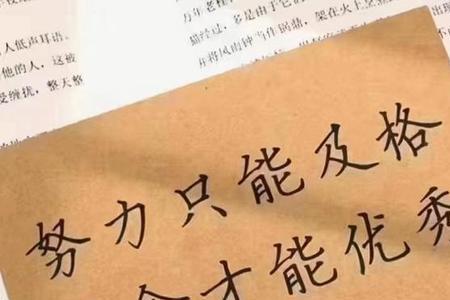 人低声耳语。
他的人，这被
受缠扰，整天整
万年老
猫经过，多是由于它
当作锅鼎，架在火上
出现
努力只能及格
才能优秀